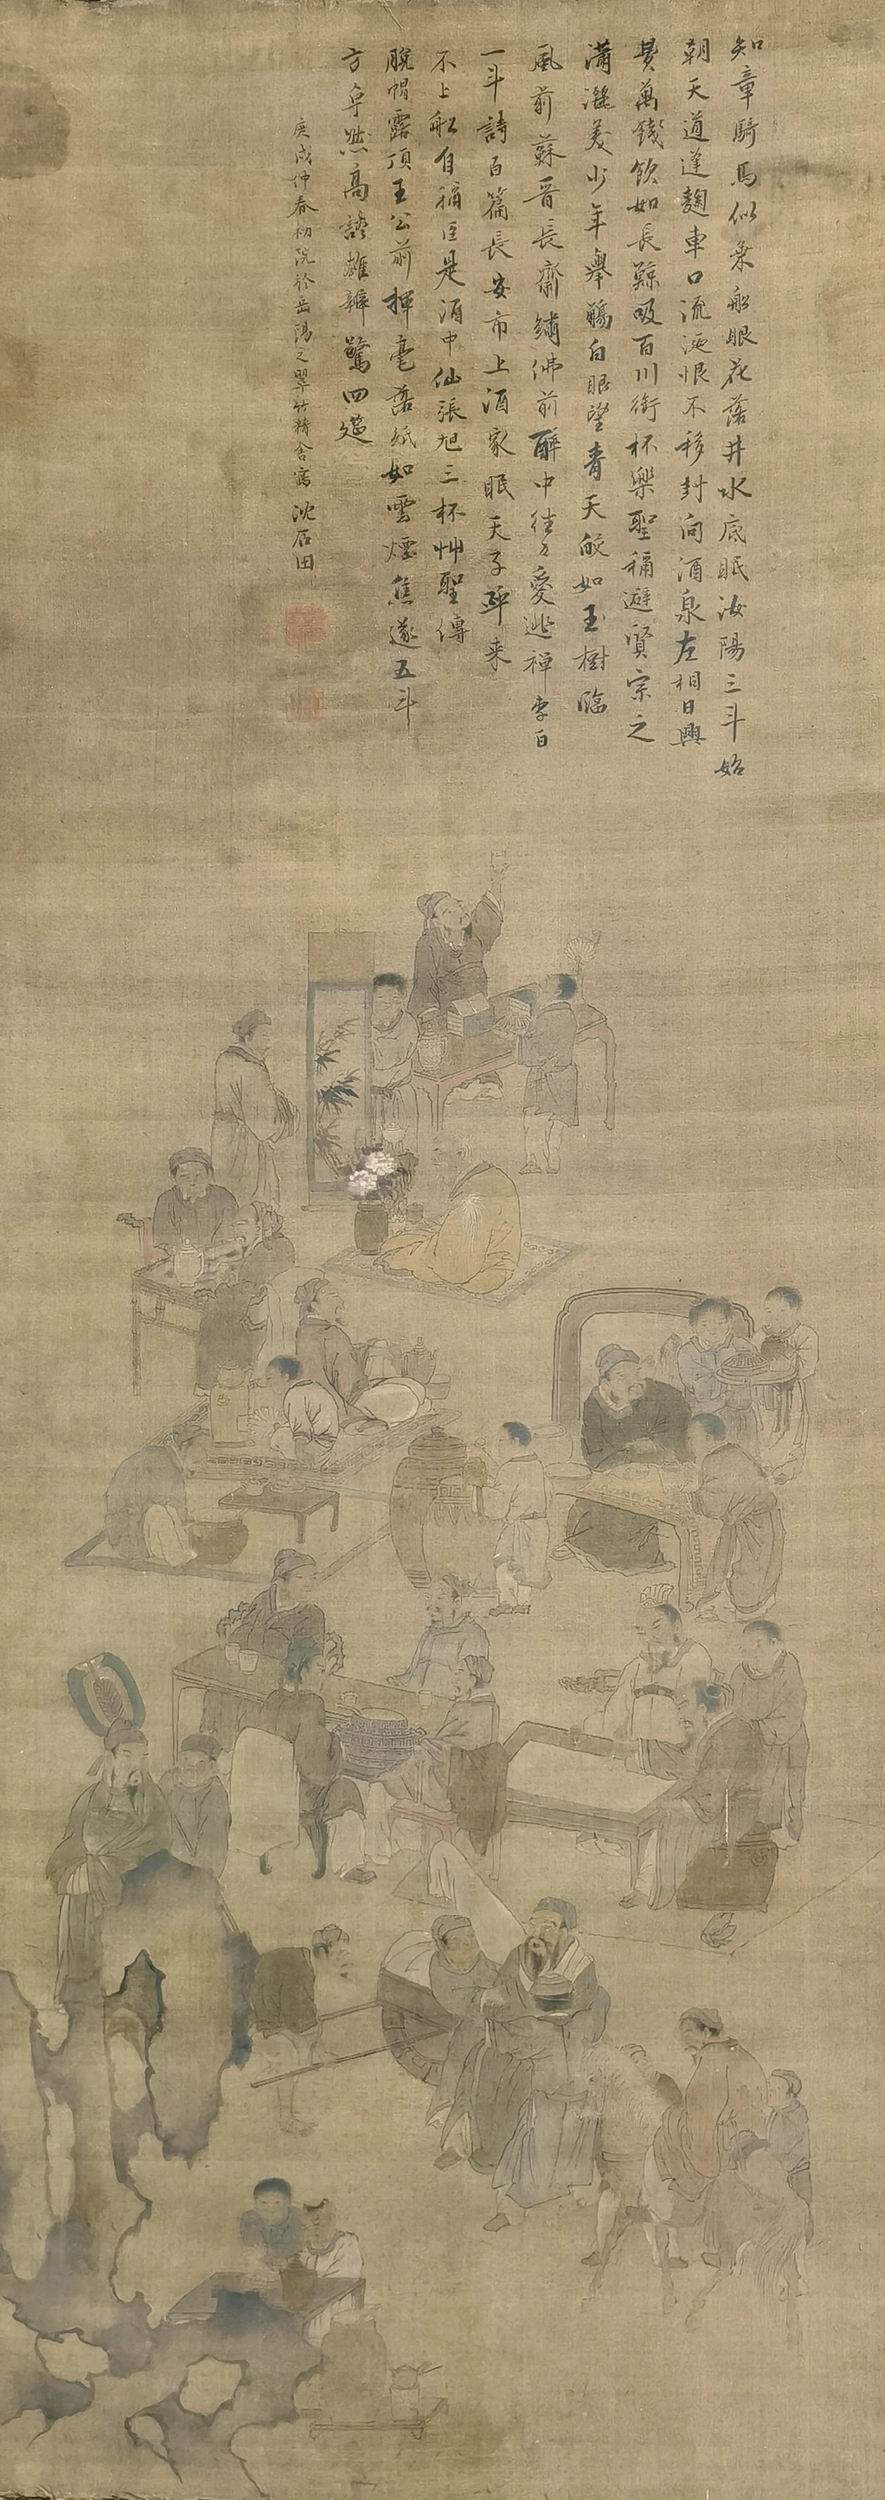 知章騎馬似乘船眼花落井水底眠汝陽三斗始
朝天道逢麴車口流涎恨不移封向酒泉左相日興
費萬錢飲如長鯨吸百川銜杯樂聖稱避賢宗之
瀟灑美少年舉觴白眼望青天皎如玉樹臨
風前蘇晉長齋繡佛前醉中往々愛逃禪李白
一斗詩百篇長安市上酒家眠天子呼来
不上船自稱臣是酒中仙張旭三杯艸聖傳
脫帽露頂王公前揮毫落紙如雲煙焦遂五斗
方卓然高談雄辨驚四筵
庚戌仲春初浣於岳陽之翠竹精舍寫 沈石田